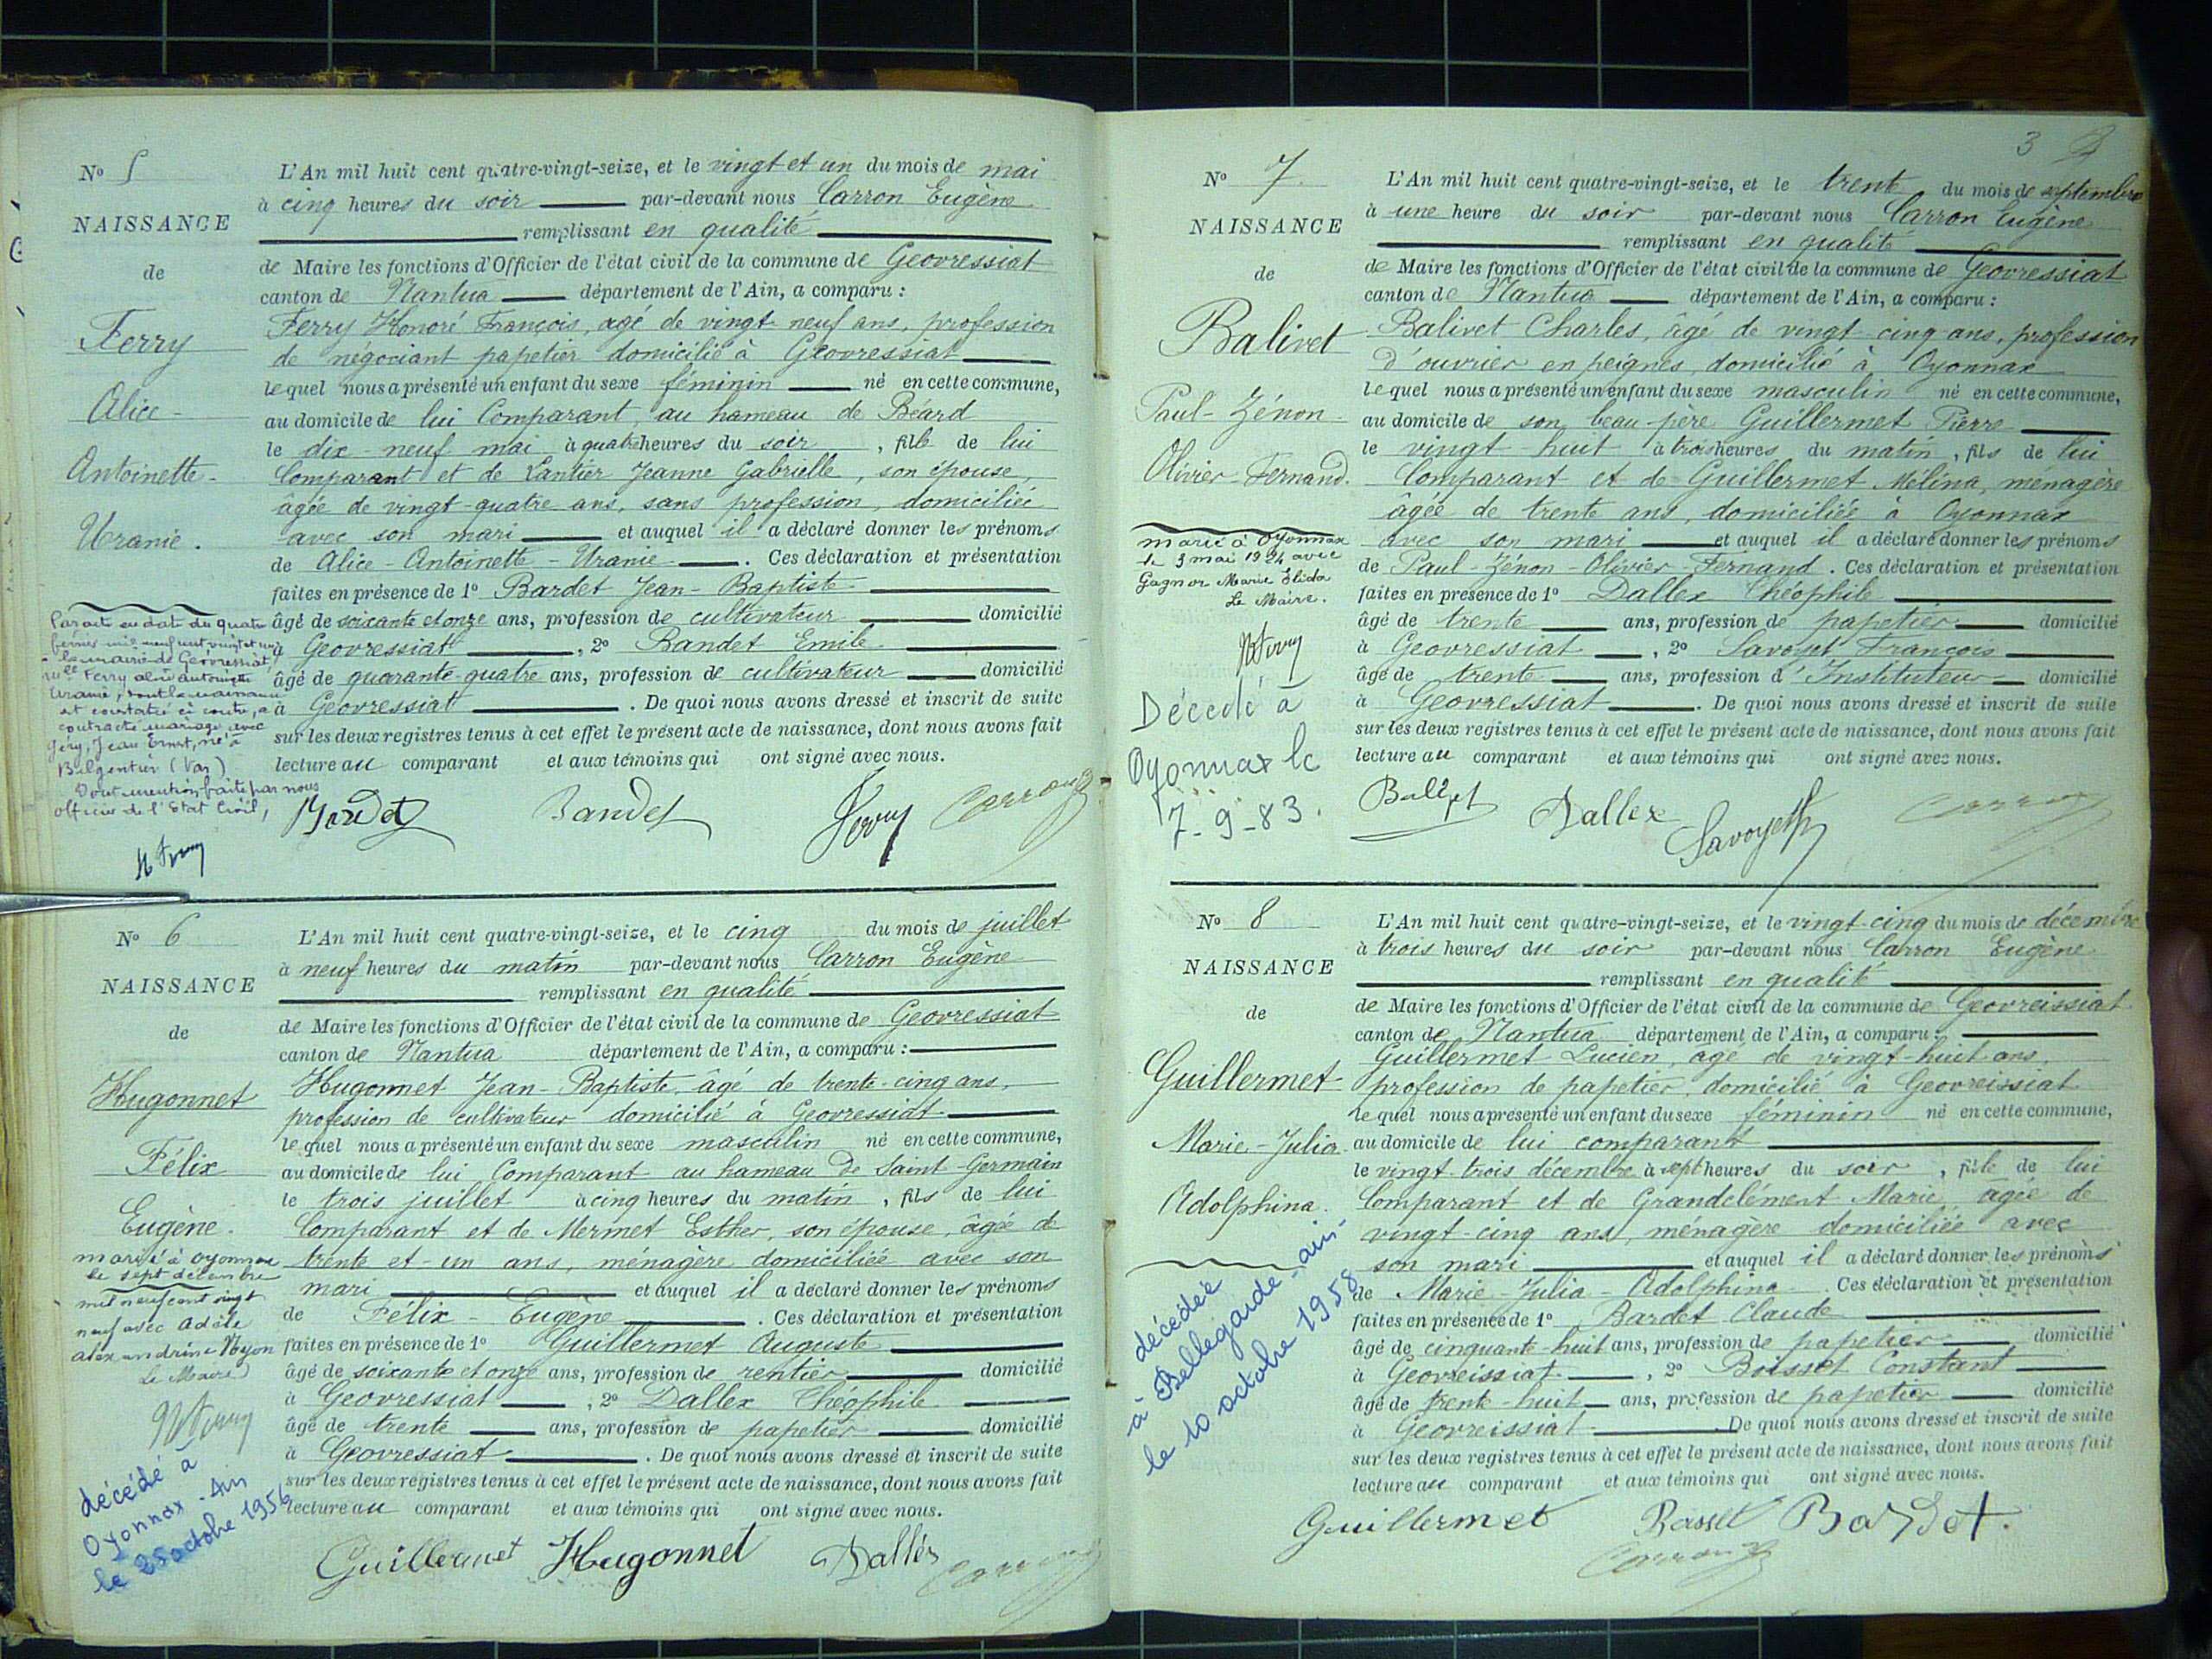 N° 5
NAISSANCE
de
Ferry
Alice-
Antoinette-
Uranie.
Par acte en date du quatre
février mil neuf cent vingt et un
la mairie de Geovressiat
Mlle Ferry Alice Antoinette
Uranie, dont la naissance
est constatée ci contre, a
contracté mariage avec
Géry, Jean Ernest, né à
Belgentier (Var)
Dont mention faite par nous
officier de l'Etat Civil,
L'An mil huit cent quatre-vingt-seize, et le vingt et un du mois de mai
à cinq heures du soir par-devant nous Carron Eugène
remplissant en qualité
de Maire les fonctions d'Officier de l'état civil de la commune de Geovressiat
canton de Nantua département de l'Ain, a comparu :
Ferry Honoré François, âgé de vingt-neuf ans, profession
de négociant papetier domicilié à Geovressiat
lequel nous a présenté un enfant du sexe féminin né en cette commune,
au domicile de lui Comparant, au hameau de Béard
le dix-neuf mai à quatre heures du soir, fille de lui
Comparant et de Lantier Jeanne Gabrielle, son épouse,
âgée de vingt-quatre ans, sans profession, domiciliée
avec son mari et auquel il a déclaré donner les prénoms
de Alice-Antoinette-Uranie. Ces déclaration et présentation
faites en présence de 1° Bardet Jean-Baptiste
âgé de soixante et onze ans, profession de cultivateur domicilié
à Geovressiat, 2° Bandet Emile
âgé de quarante-quatre ans, profession de cultivateur domicilié
à Geovressiat. De quoi nous avons dressé et inscrit de suite
sur les deux registres tenus à cet effet le présent acte de naissance, dont nous avons fait
lecture au comparant et aux témoins qui ont signé avec nous.
Bardet Bandet Ferry Carron
N° 6
NAISSANCE
de
Hugonnet
Félix
Eugène.
marié à Oyonnax
le sept décembre
mil neuf cent vingt
neuf avec Adèle
Alexandrine Nyon
Le Maire
décédé à
Oyonnax - Ain
le 25 octobre 1956
L'An mil huit cent quatre-vingt-seize, et le cinq du mois de juillet
à neuf heures du matin par-devant nous Carron Eugène
remplissant en qualité
de Maire les fonctions d'Officier de l'état civil de la commune de Geovressiat
canton de Nantua département de l'Ain, a comparu :
Hugonnet Jean-Baptiste, âgé de trente-cinq ans,
profession de cultivateur domicilié à Geovressiat
lequel nous a présenté un enfant du sexe masculin né en cette commune,
au domicile de lui Comparant au hameau de Saint-Germain
le trois juillet à cinq heures du matin, fils de lui
Comparant et de Mermet Esther, son épouse, âgée de
trente et un ans, ménagère domiciliée avec son
mari et auquel il a déclaré donner les prénoms
de Félix-Eugène. Ces déclaration et présentation
faites en présence de 1° Guillermet Auguste
âgé de soixante et onze ans, profession de rentier domicilié
à Geovressiat, 2° Dallex Théophile
âgé de trente ans, profession de papetier domicilié
à Geovressiat. De quoi nous avons dressé et inscrit de suite
sur les deux registres tenus à cet effet le présent acte de naissance, dont nous avons fait
lecture au comparant et aux témoins qui ont signé avec nous.
Guillermet Hugonnet Dallex Carron
3
N° 7.
NAISSANCE
de
Balivet
Paul-Zénon-
Olivier-Fernand.
marié à Oyonnax
le 3 mai 1924 avec
Gagnor Marie Elida
Le Maire.
Décédé à
Oyonnax le
7-9-83.
L'An mil huit cent quatre-vingt-seize, et le trente du mois de septembre
à une heure du soir par-devant nous Carron Eugène
remplissant en qualité
de Maire les fonctions d'Officier de l'état civil de la commune de Geovressiat
canton de Nantua département de l'Ain, a comparu :
Balivet Charles, âgé de vingt-cinq ans, profession
d'ouvrier en peignes, domicilié à Oyonnax
lequel nous a présenté un enfant du sexe masculin né en cette commune,
au domicile de son beau-père Guillermet Pierre
le vingt-huit à trois heures du matin, fils de lui
Comparant et de Guillermet Mélina, ménagère
âgée de trente ans, domiciliée à Oyonnax
avec son mari et auquel il a déclaré donner les prénoms
de Paul-Zénon-Olivier-Fernand. Ces déclaration et présentation
faites en présence de 1° Dallex Théophile
âgé de trente ans, profession de papetier domicilié
à Geovressiat, 2° Savoyet François
âgé de trente ans, profession d'Instituteur domicilié
à Geovressiat. De quoi nous avons dressé et inscrit de suite
sur les deux registres tenus à cet effet le présent acte de naissance, dont nous avons fait
lecture au comparant et aux témoins qui ont signé avec nous.
Balivet Dallex Savoyet Carron
N° 8
NAISSANCE
de
Guillermet
Marie-Julia-
Adolphina.
décédée
à Bellegarde-ain-
le 10 octobre 1958
L'An mil huit cent quatre-vingt-seize, et le vingt-cinq du mois de décembre
à trois heures du soir par-devant nous Carron Eugène
remplissant en qualité
de Maire les fonctions d'Officier de l'état civil de la commune de Geovreissiat
canton de Nantua département de l'Ain, a comparu :
Guillermet Lucien, âgé de vingt-huit ans,
profession de papetier, domicilié à Geovreissiat
lequel nous a présenté un enfant du sexe féminin né en cette commune,
au domicile de lui comparant
le vingt-trois décembre à sept heures du soir, fille de lui
Comparant et de Grandclément Marie, âgée de
vingt-cinq ans, ménagère domiciliée avec
son mari et auquel il a déclaré donner les prénoms
de Marie-Julia-Adolphina. Ces déclaration et présentation
faites en présence de 1° Bardet Claude
âgé de cinquante-huit ans, profession de papetier domicilié
à Geovreissiat, 2° Boisset Constant
âgé de trente-huit ans, profession de papetier domicilié
à Geovreissiat. De quoi nous avons dressé et inscrit de suite
sur les deux registres tenus à cet effet le présent acte de naissance, dont nous avons fait
lecture au comparant et aux témoins qui ont signé avec nous.
Guillermet Boisset Bardet.
Carron